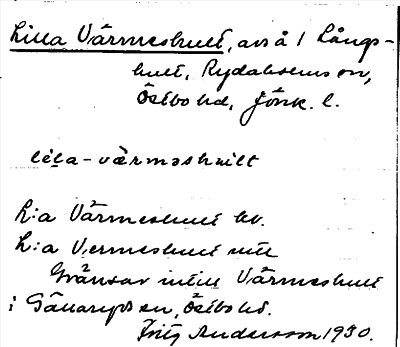 Lilla Värmeshult, avs å 1 Långs-
hult, Rydaholms sn,
Östbo hd, Jönk. l.
lila-värməshult
L:a Värmeshult kv.
L:a Vermeshult
Gränsar intill Värmeshult
i Gällaryds sn, Östbo hd.
Fritz Andersson 1930.